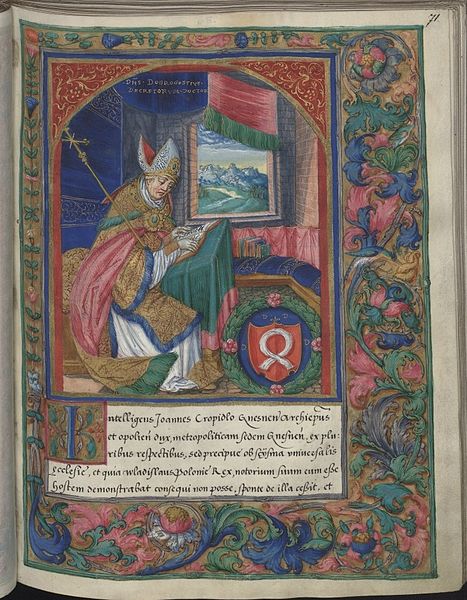 71
DNS DOBROGOSTIVS
DECRETORVM DOCTOR
Intelligens Joannes Cropidlo Gnesneñ Archiepus
et opolieñ dux, metropoliticam sedem Gnesneñ, ex plu-
ribus respectibus, sed precipue ob scisma universalis
Ecclesie, et quia Wladislaus Polonie Rex, notorium suum eum esse
hostem demonstrabat consequi non posse, sponte de illa cessit, et